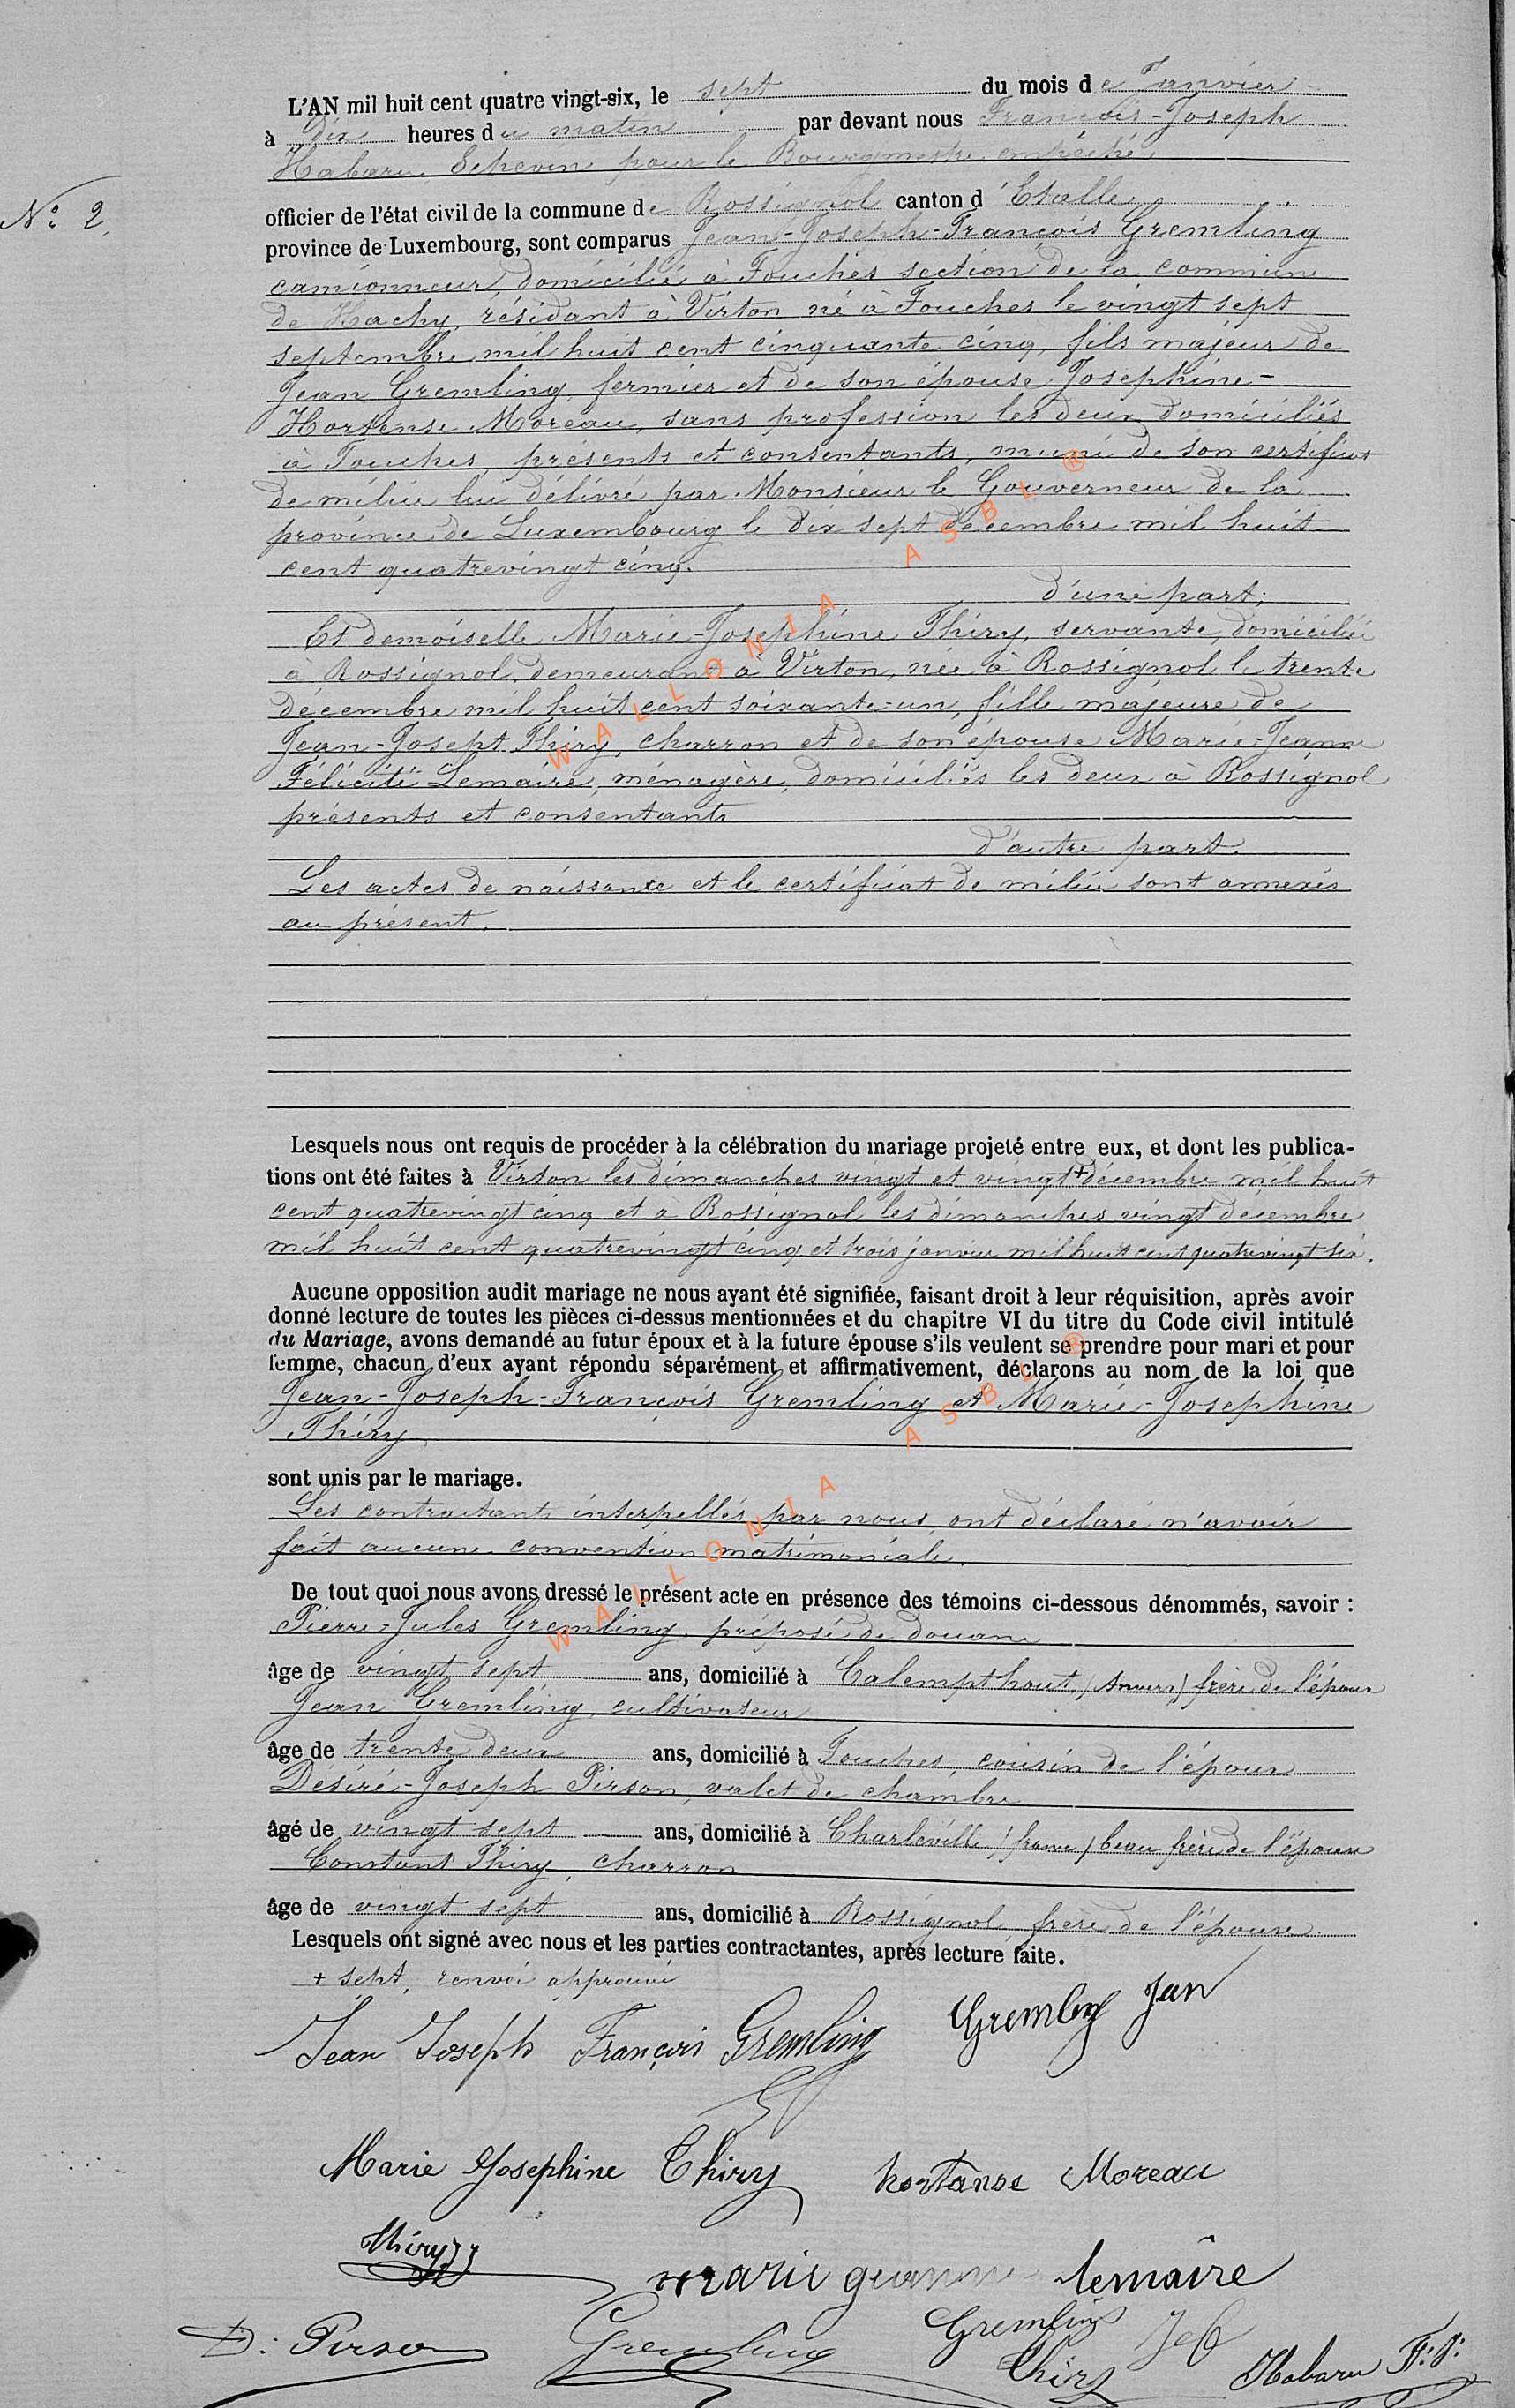 L'AN mil huit cent quatre vingt-six, le sept du mois de Janvier
à dix heures du matin par devant nous François-Joseph
Habaru, Echevin pour le Bourgmestre empêché
N° 2.
officier de l'état civil de la commune de Rossignol canton d'Etalle
province de Luxembourg, sont comparus Jean-Joseph-François Gremling
camionneur, domicilié à Fouches section de la commune
de Hachy, résidant à Virton né à Fouches le vingt sept
septembre mil huit cent cinquante cinq, fils majeur de
Jean Gremling, fermier et de son épouse Josephine-
Hortense Moreau, sans profession les deux domiciliés
à Fouches, présents et consentants, muni de son certificat
de milice lui délivré par Monsieur le Gouverneur de la
province de Luxembourg le dix sept décembre mil huit
cent quatrevingt cinq.
d'une part;
Et demoiselle Marie-Josephine Thiry, servante, domiciliée
à Rossignol, demeurant à Virton, née à Rossignol le trente
décembre mil huit cent soixante-un, fille majeure de
Jean-Joseph Thiry, charron et de son épouse Marie-Jeanne
Félicité Lemaire, ménagère, domiciliés les deux à Rossignol
présents et consentants
d'autre part.
Les actes de naissance et le certificat de milice sont annexés
au présent.
Lesquels nous ont requis de procéder à la célébration du mariage projeté entre eux, et dont les publica-
tions ont été faites à Virton les dimanches vingt et vingt + décembre mil huit
cent quatrevingt cinq et à Rossignol les dimanches vingt décembre
mil huit cent quatrevingt cinq et trois janvier mil huit cent quatrevingt six.
Aucune opposition audit mariage ne nous ayant été signifiée, faisant droit à leur réquisition, après avoir
donné lecture de toutes les pièces ci-dessus mentionnées et du chapitre VI du titre du Code civil intitulé
du Mariage, avons demandé au futur époux et à la future épouse s'ils veulent se prendre pour mari et pour
femme, chacun d'eux ayant répondu séparément et affirmativement, déclarons au nom de la loi que
Jean-Joseph-François Gremling et Marie-Josephine
Thiry
sont unis par le mariage.
Les contractants interpellés par nous ont déclaré n'avoir
fait aucune convention matrimoniale.
De tout quoi nous avons dressé le présent acte en présence des témoins ci-dessous dénommés, savoir :
Pierre-Jules Gremling, préposé de douane
âge de vingt sept ans, domicilié à Calempthout, (Anvers) frère de l'époux
Jean Gremling, cultivateur
âge de trente deux ans, domicilié à Fouches, cousin de l'époux
Désiré-Joseph Pirson, valet de chambre
âgé de vingt sept ans, domicilié à Charleville (france) beau frère de l'épouse
Constant Thiry, charron
âge de vingt sept ans, domicilié à Rossignol, frère de l'épouse
Lesquels ont signé avec nous et les parties contractantes, après lecture faite.
+ sept, renvoi approuvé
Jean Joseph François Gremling Gremling Jean
Marie Josephine Thiry hortanse Moreau
Thiry JJ
marie jeanne lemaire
D: Pirson Gremling Gremling
Thiry Habaru F: J:
WALLONIA ASBL ®
WALLONIA ASBL ®